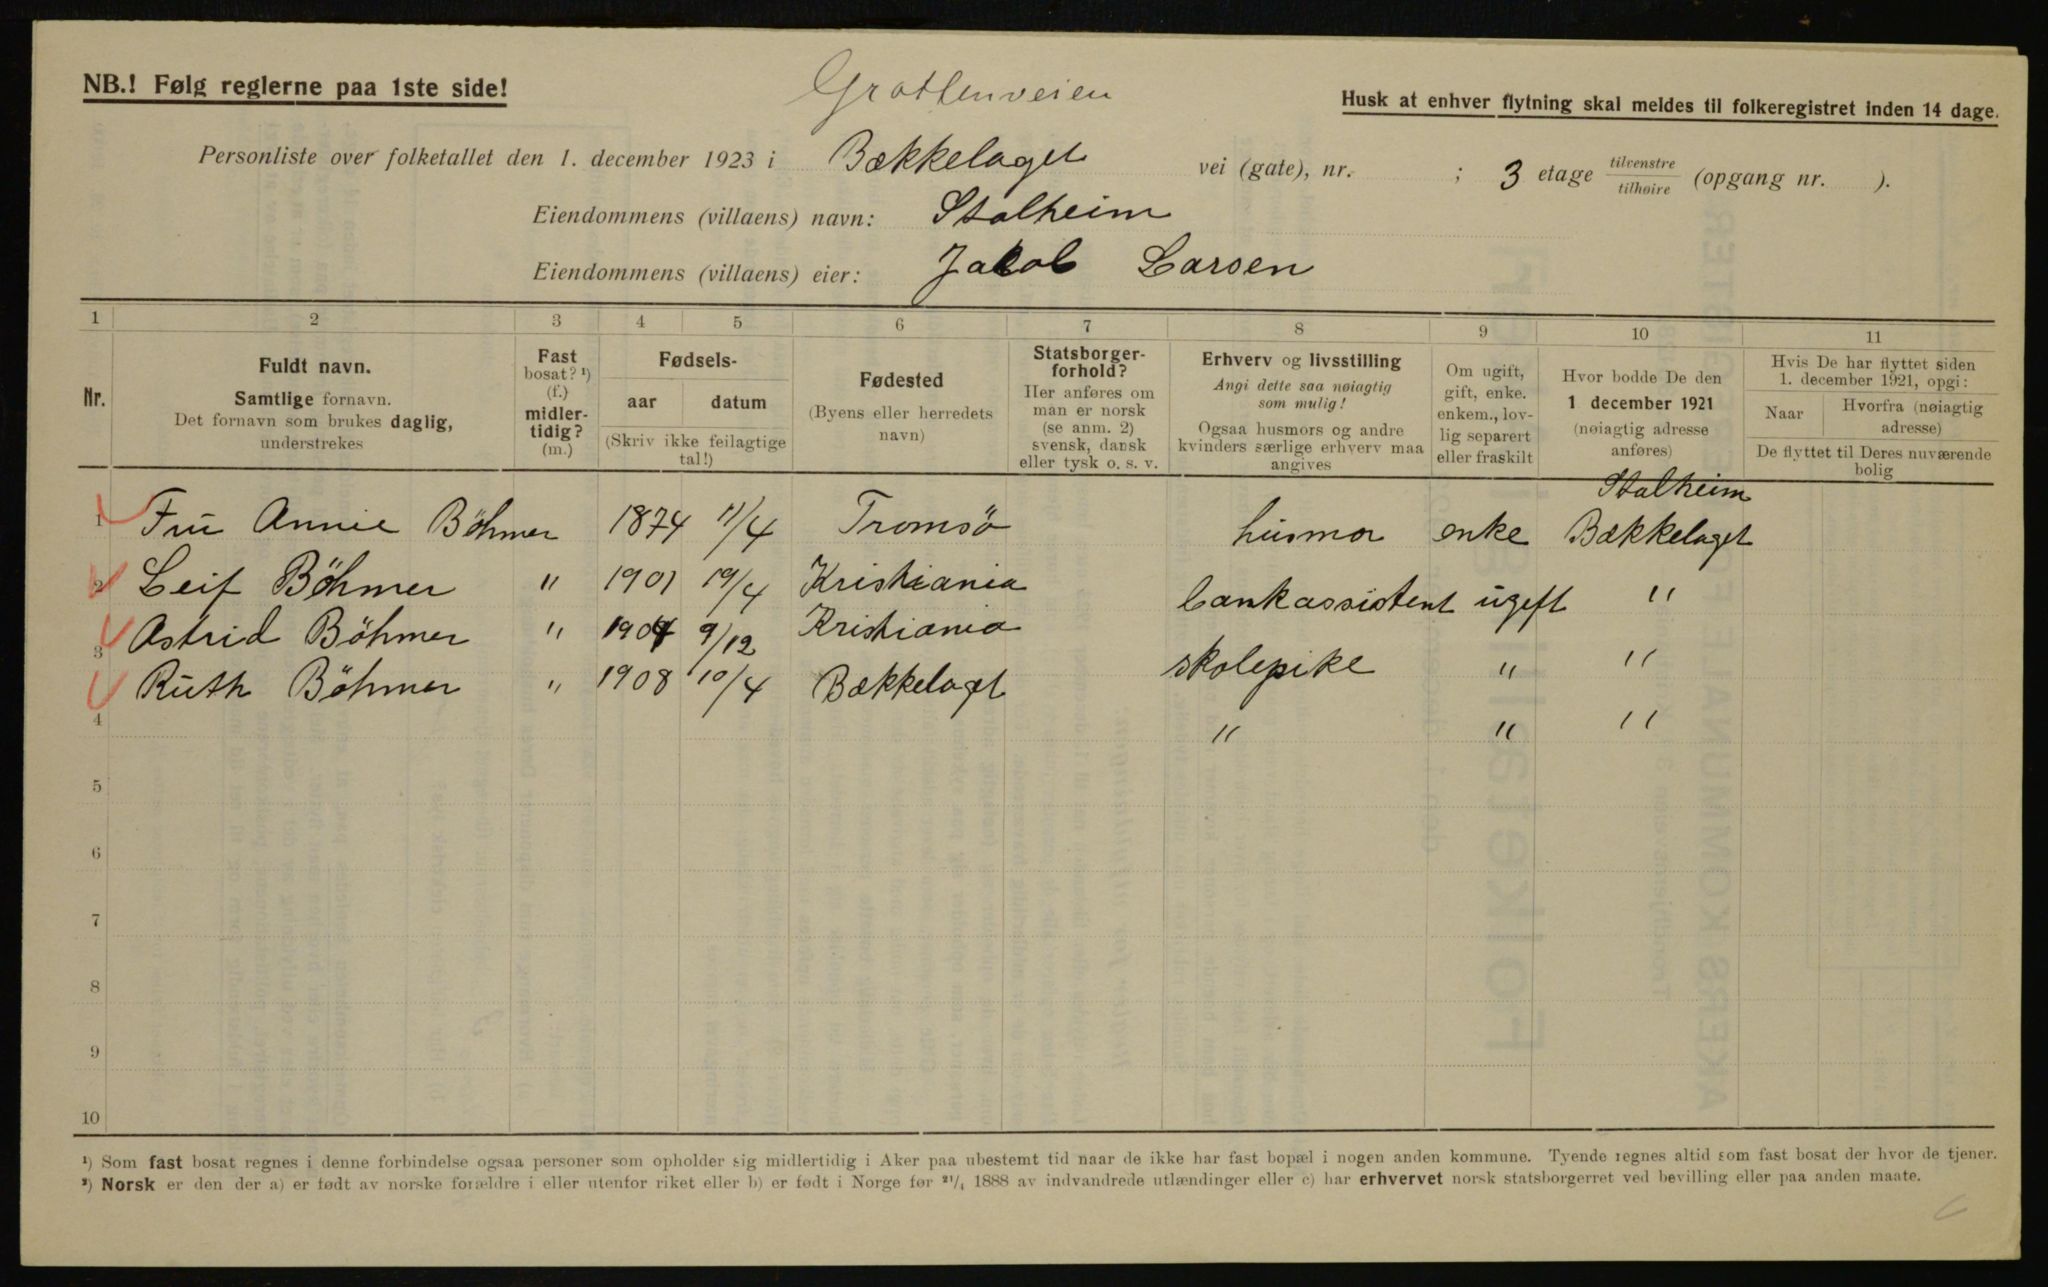 NB.! Følg reglerne paa 1ste side!
Grottenveien
Husk at enhver flytning skal meldes til folkeregistret inden 14 dage.
Personliste over folketallet den 1. december 1923 i Bækkelaget vei (gate), nr. ; 3 etage tilvenstre/tilhøire (opgang nr. ).
Eiendommens (villaens) navn: Stalheim
Eiendommens (villaens) eier: Jakob Larsen
1 2 3 4 5 6 7 8 9 10 11
Nr.
Fuldt navn.
Samtlige fornavn.
Det fornavn som brukes daglig,
understrekes
Fast
bosat? ¹)
(f.)
midler-
tidig?
(m.)
Fødsels-
aar datum
(Skriv ikke feilagtige
tal!)
Fødested
(Byens eller herredets
navn)
Statsborger-
forhold?
Her anføres om
man er norsk
(se anm. 2)
svensk, dansk
eller tysk o. s. v.
Erhverv og livsstilling
Angi dette saa nøiagtig
som mulig!
Ogsaa husmors og andre
kvinders særlige erhverv maa
angives
Om ugift,
gift, enke.
enkem., lov-
lig separert
eller fraskilt
Hvor bodde De den
1 december 1921
(nøiagtig adresse
anføres)
Hvis De har flyttet siden
1. december 1921, opgi:
Naar Hvorfra (nøiagtig
adresse)
De flyttet til Deres nuværende
bolig
Stalheim
1 Fru Annie Böhmer 1874 11/4 Tromsö husmor enke Bækkelaget
2 Leif Böhmer " 1901 19/4 Kristiania bankassistent ugift "
3 Astrid Böhmer " 1904 9/12 Kristiania skolepike " "
4 Ruth Böhmer " 1908 10/4 Bækkelaget " " "
5
6
7
8
9
10
¹) Som fast bosat regnes i denne forbindelse ogsaa personer som opholder sig midlertidig i Aker paa ubestemt tid naar de ikke har fast bopæl i nogen anden kommune. Tyende regnes altid som fast bosat der hvor de tjener.
²) Norsk er den der a) er født av norske forældre i eller utenfor riket eller b) er født i Norge før 21/4 1888 av indvandrede utlændinger eller c) har erhvervet norsk statsborgerret ved bevilling eller paa anden maate.